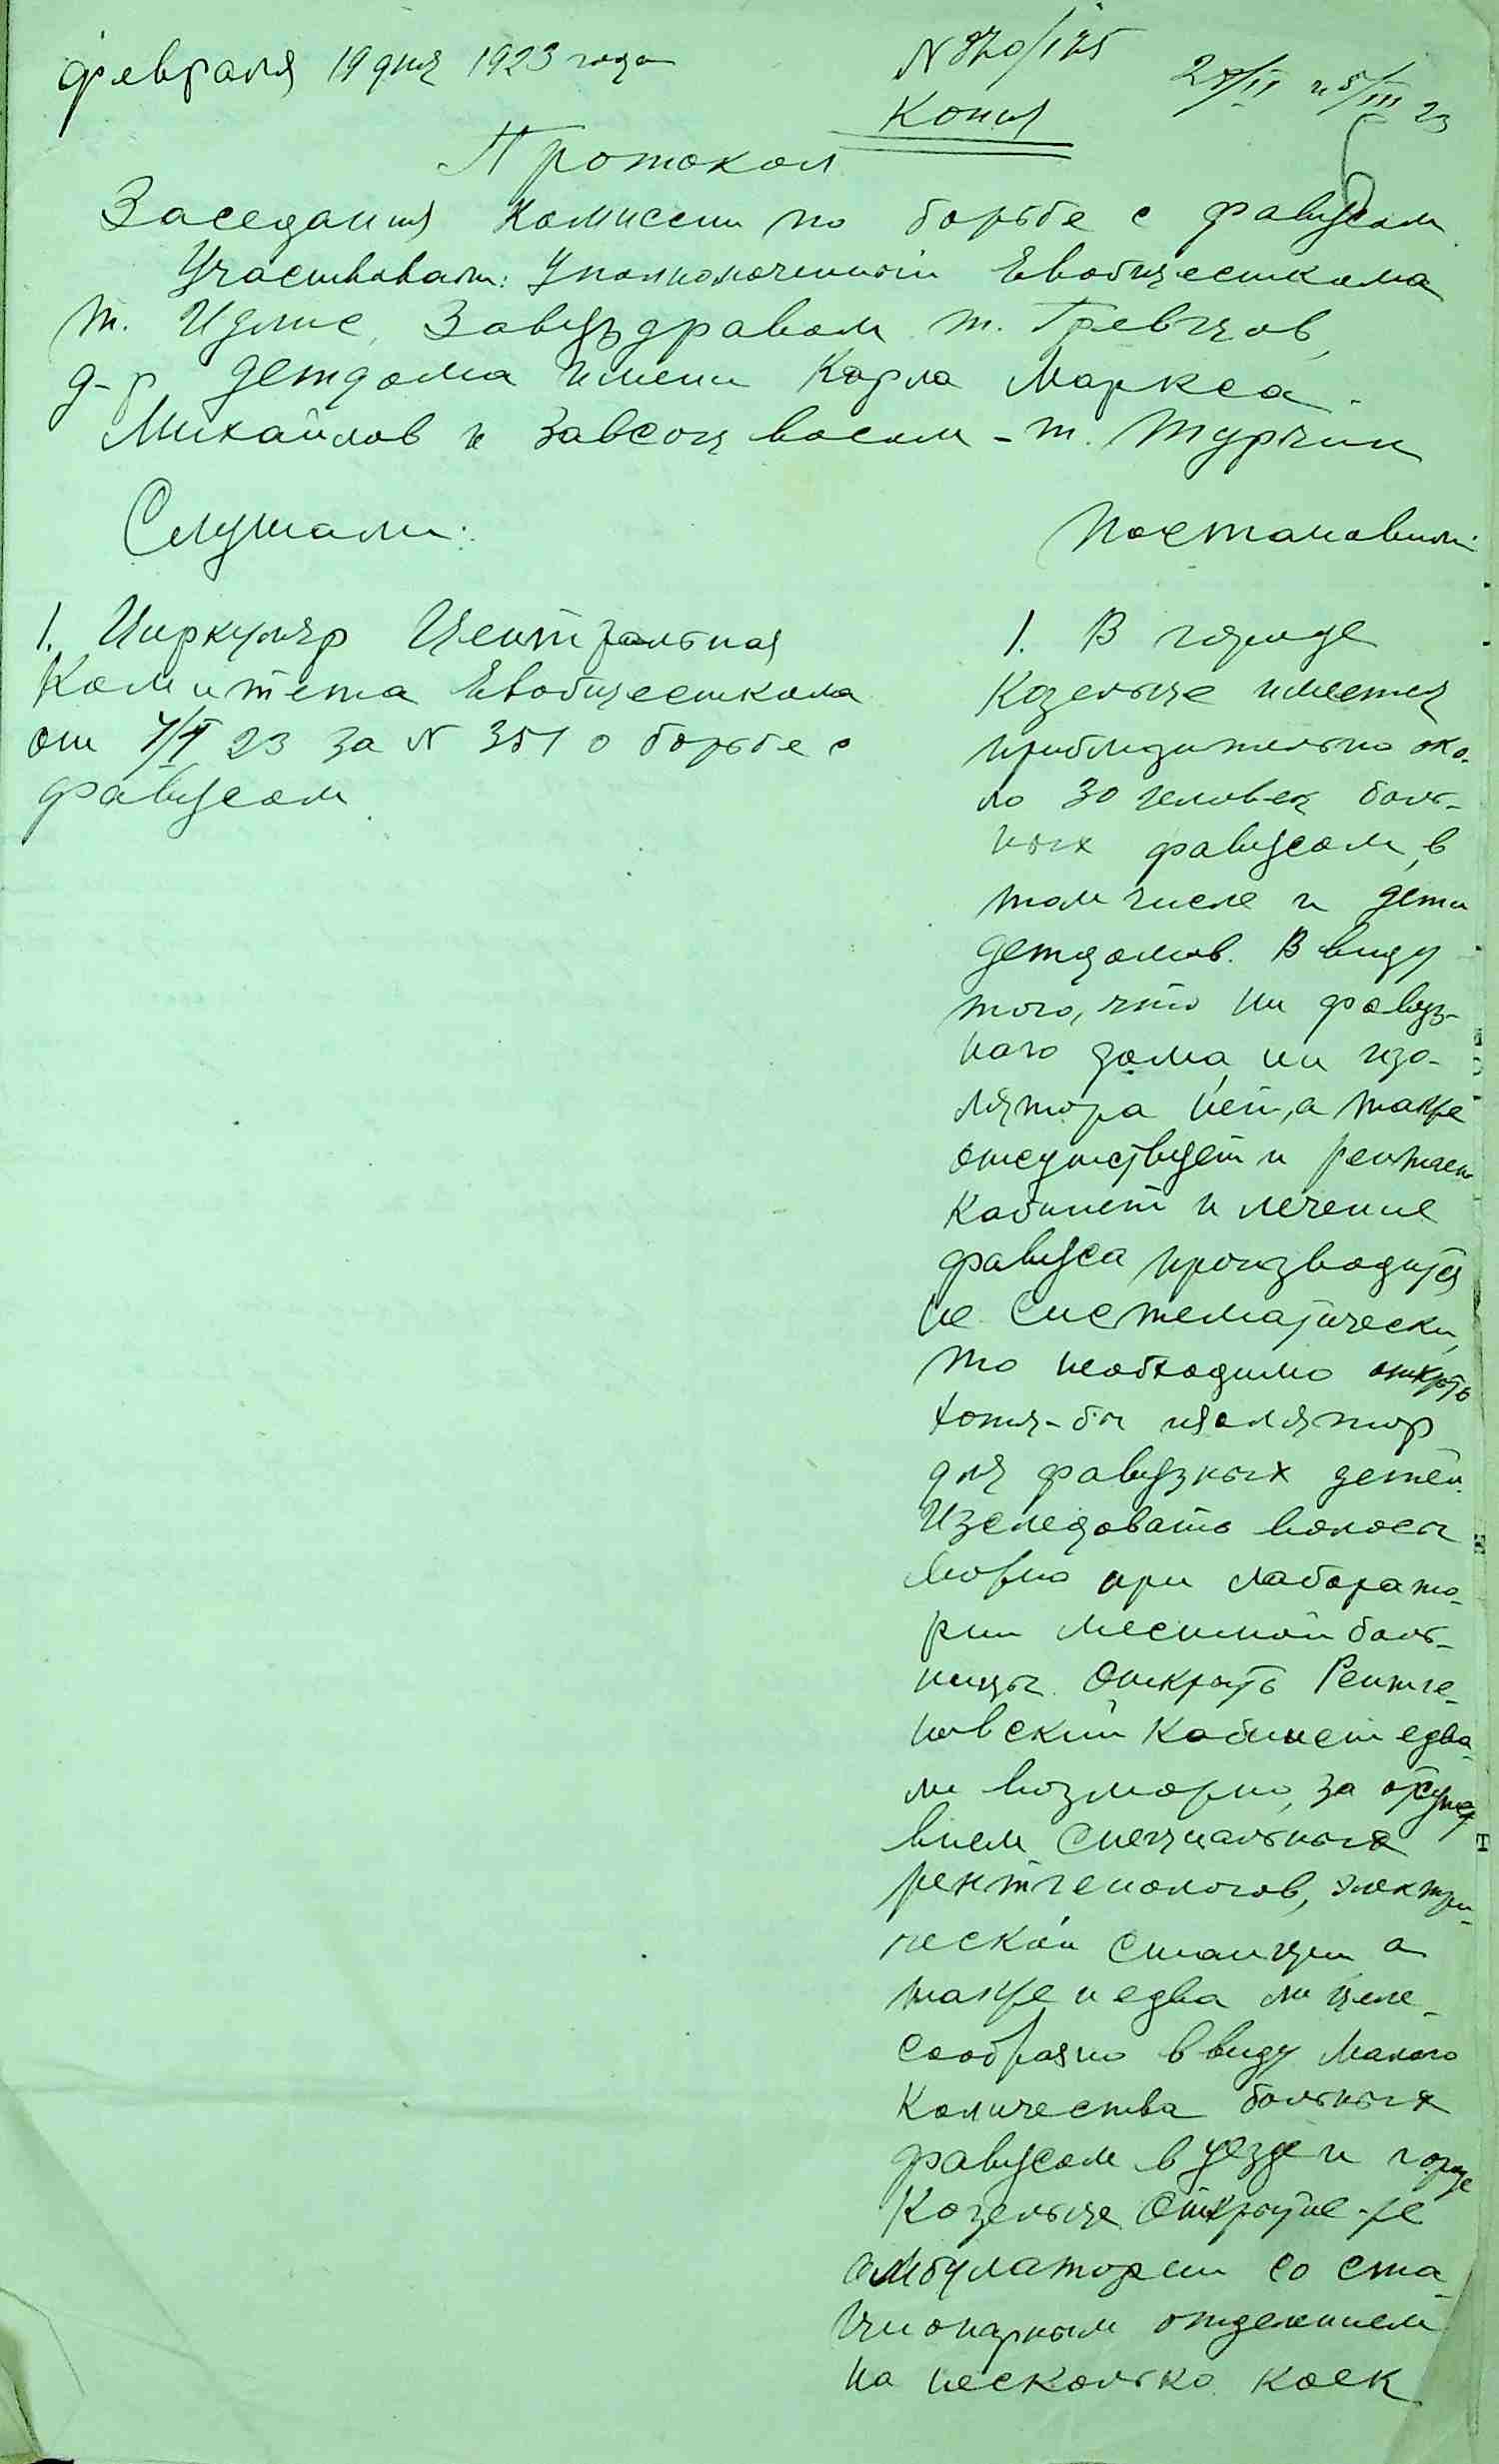 февраля 19 дня 1923 года
N 820/125
Копия
Протокол
Заседания Комиссии по борьбе с фавусом
Участвовали: Уполномоченный Евобщесткома
т. Идлис, Завуздравом т. Гревцов,
д-р детдома имени Карла Маркса
Михайлов и Завсоцвосом - т. Турчин
Слушали:
1. Циркуляр Центральная
Комитета Евобщесткома
от 23 за N 351 о борьбе с
фавусом
Постановили:
1. В городе
Козельце имеется
приблизительно око-
ло 30 человек боль-
ных фавусом, в
том числе и дети
детдомов. В виду
того, что ни фавуз-
ного дома, ни изо-
лятора нет, а также
отсутствует и рентген
кабинет и лечение
фавуса производится
не систематически,
то необходимо открыть
хотя-бы изолятор
для фавузных детей.
Изследовать волосы
можно при лаборато-
рии местной боль-
ницы. Открыть Рентге-
новский Кабинет едва-
ли возможно, за отсутст
вием специальных
рентгенологов, электри-
ческой станции а
также и едва ли целе-
сообразно в виду малого
количества больных
фавусом в уезде и городе
Козельце. Открытие-же
амбулатории со ста-
ционарным отделением
на несколько коек